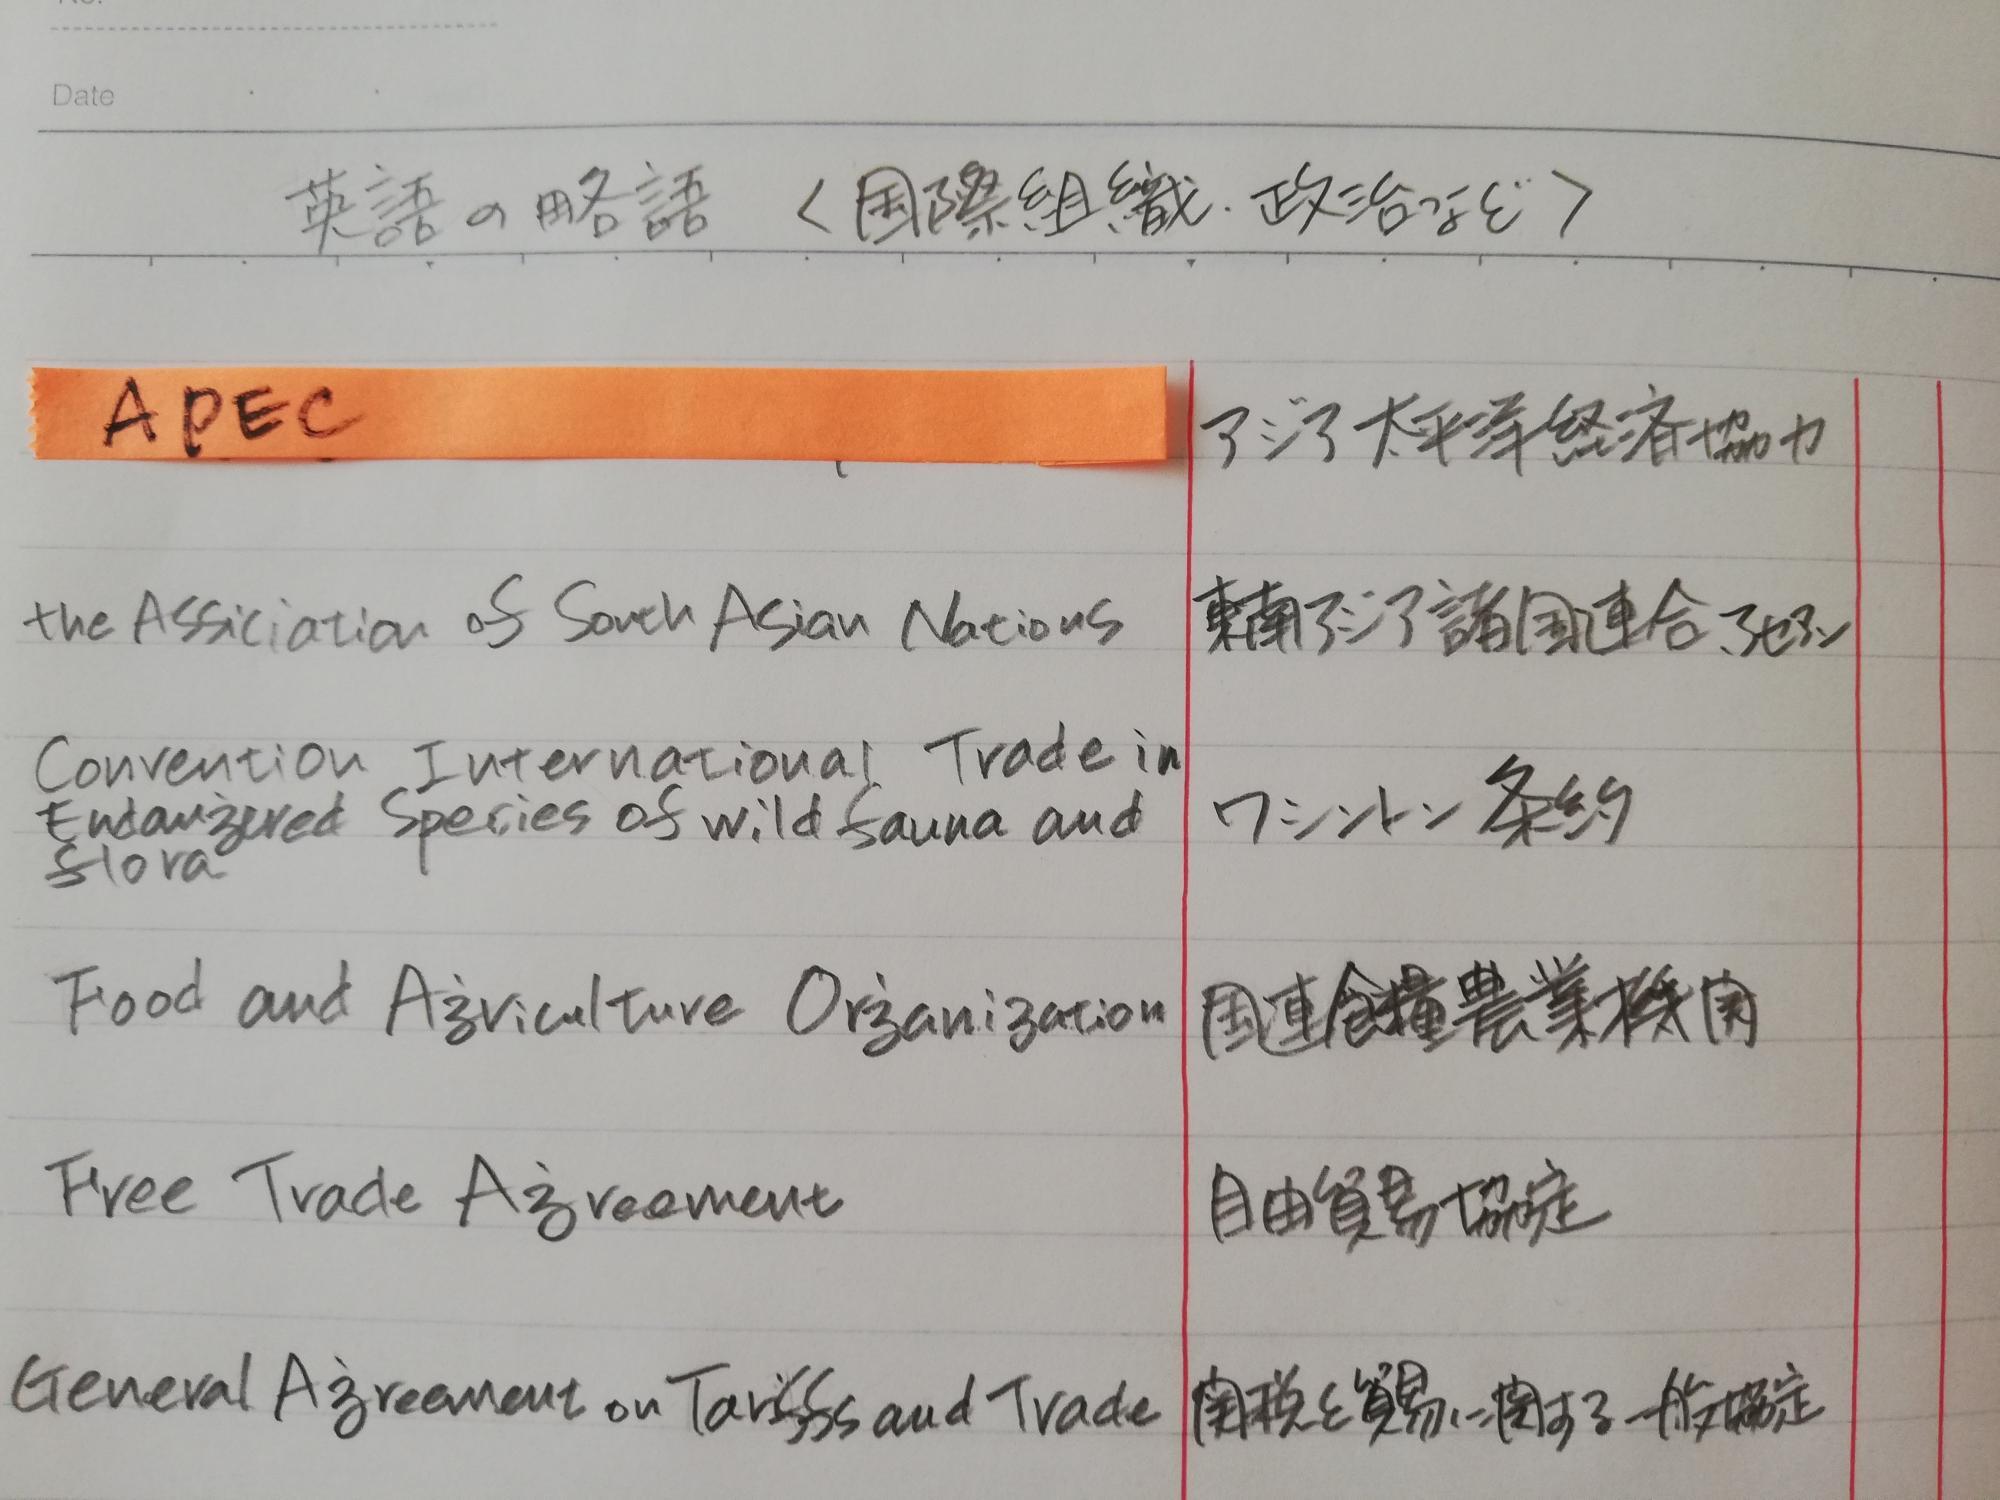 No.
Date
英語の略語 〈国際組織・政治など〉
APEC アジア太平洋経済協力
the Assiciation of South Asian Nations 東南アジア諸国連合、アセアン
Convention International Trade in
Endangered Species of wild fauna and ワシントン条約
flora
Food and Agriculture Organization 国連食糧農業機関
Free Trade Agreement 自由貿易協定
General Agreement on Tariffs and Trade 関税と貿易に関する一般協定